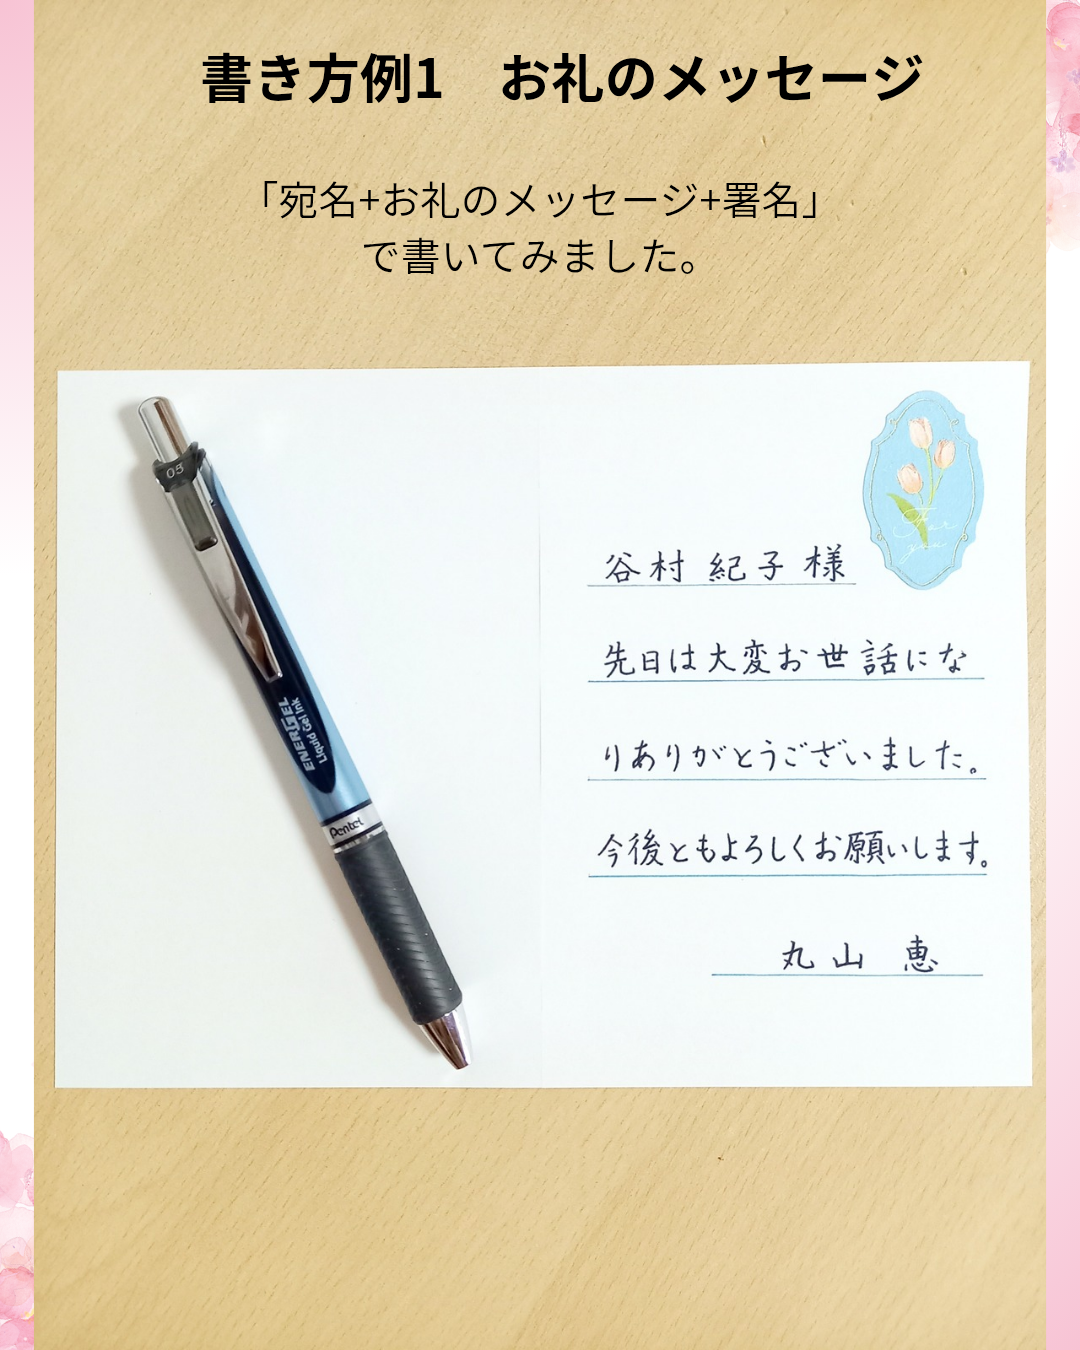 書き方例1　お礼のメッセージ
「宛名+お礼のメッセージ+署名」
で書いてみました。
05
ENERGEL
Liquid Gel Ink
Pentel
For
you
谷村 紀子 様
先日は大変お世話にな
りありがとうございました。
今後ともよろしくお願いします。
丸山 恵